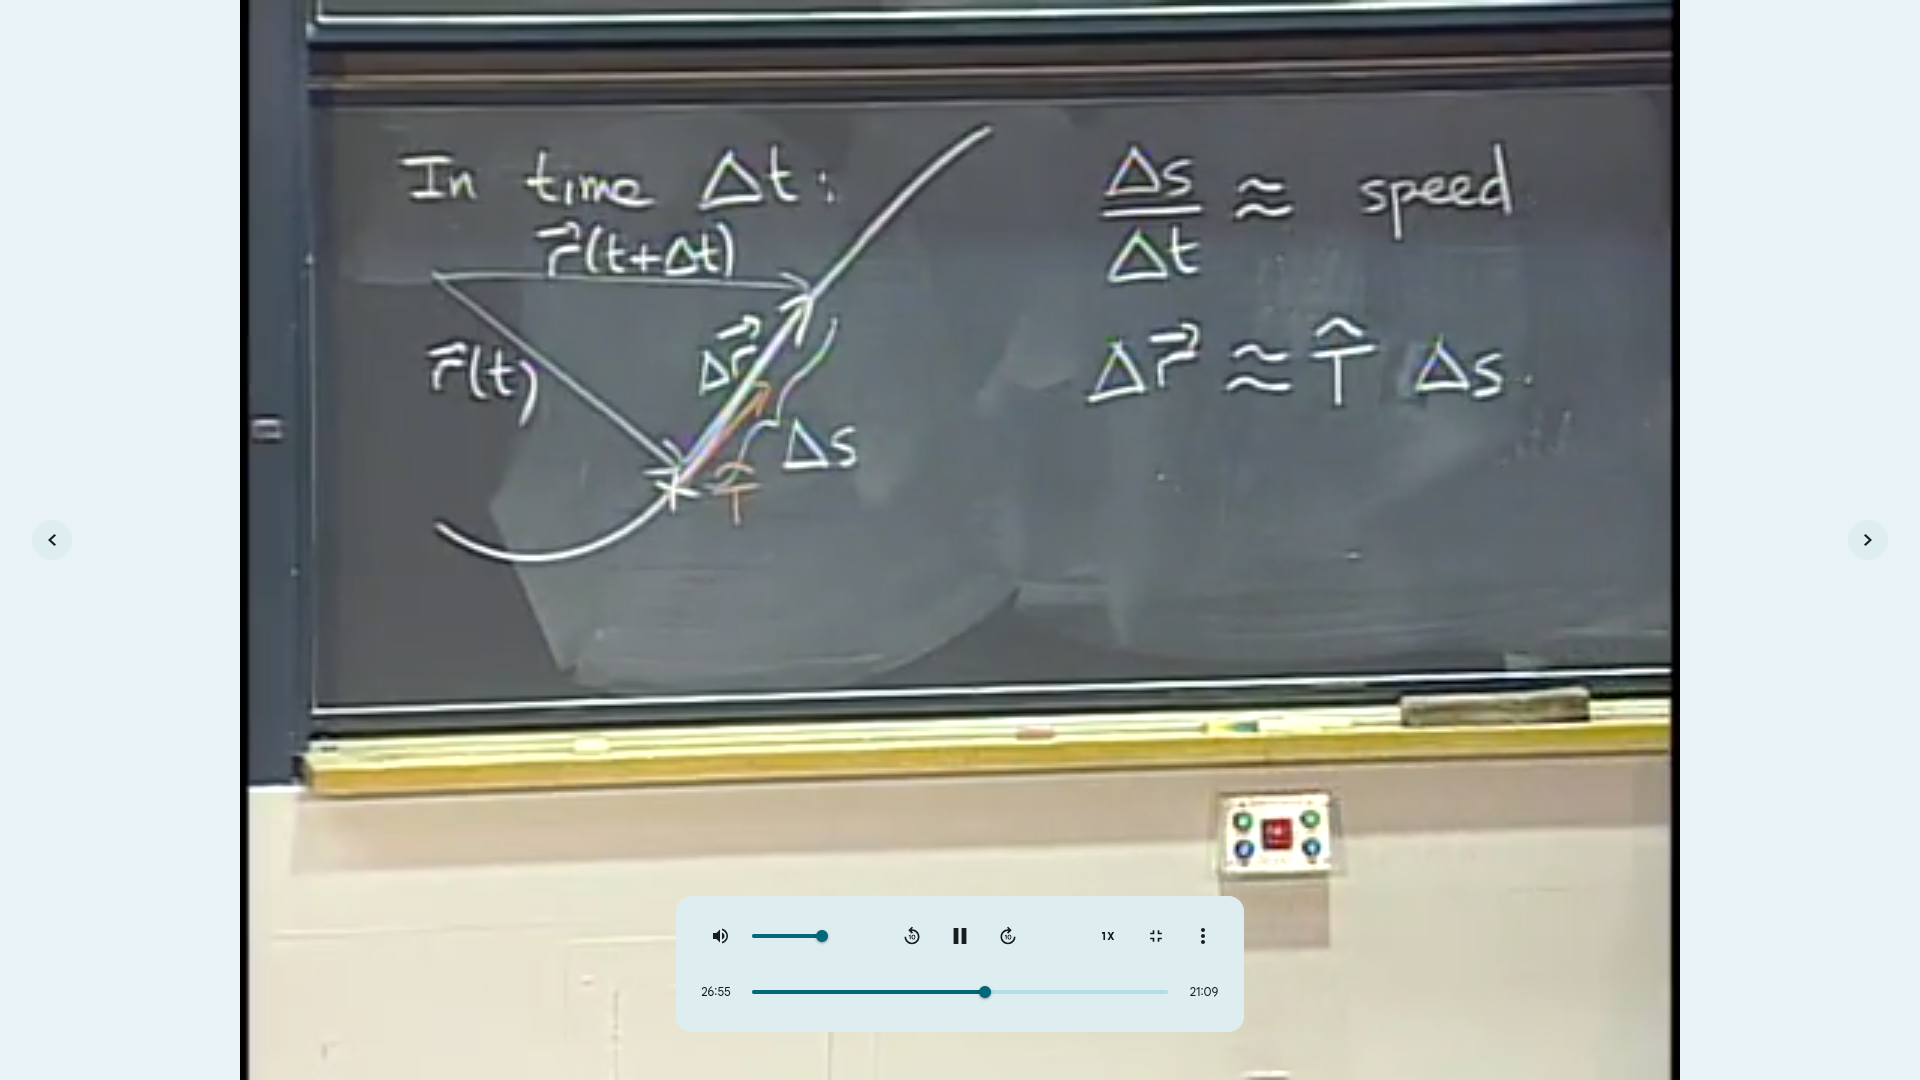 In time Δt:
r⃗(t+Δt)
r⃗(t)
Δr⃗
Δs
T̂
Δs/Δt ≈ speed
Δr⃗ ≈ T̂ Δs.
10
10
1X
26:55
21:09